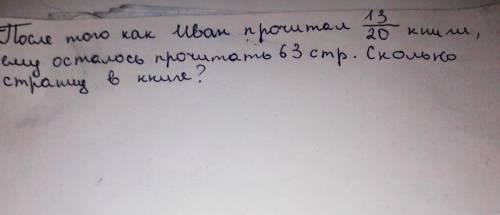 После того как Иван прочитал 13/20 книги,
ему осталось прочитать 63 стр. Сколько
страниц в книге?